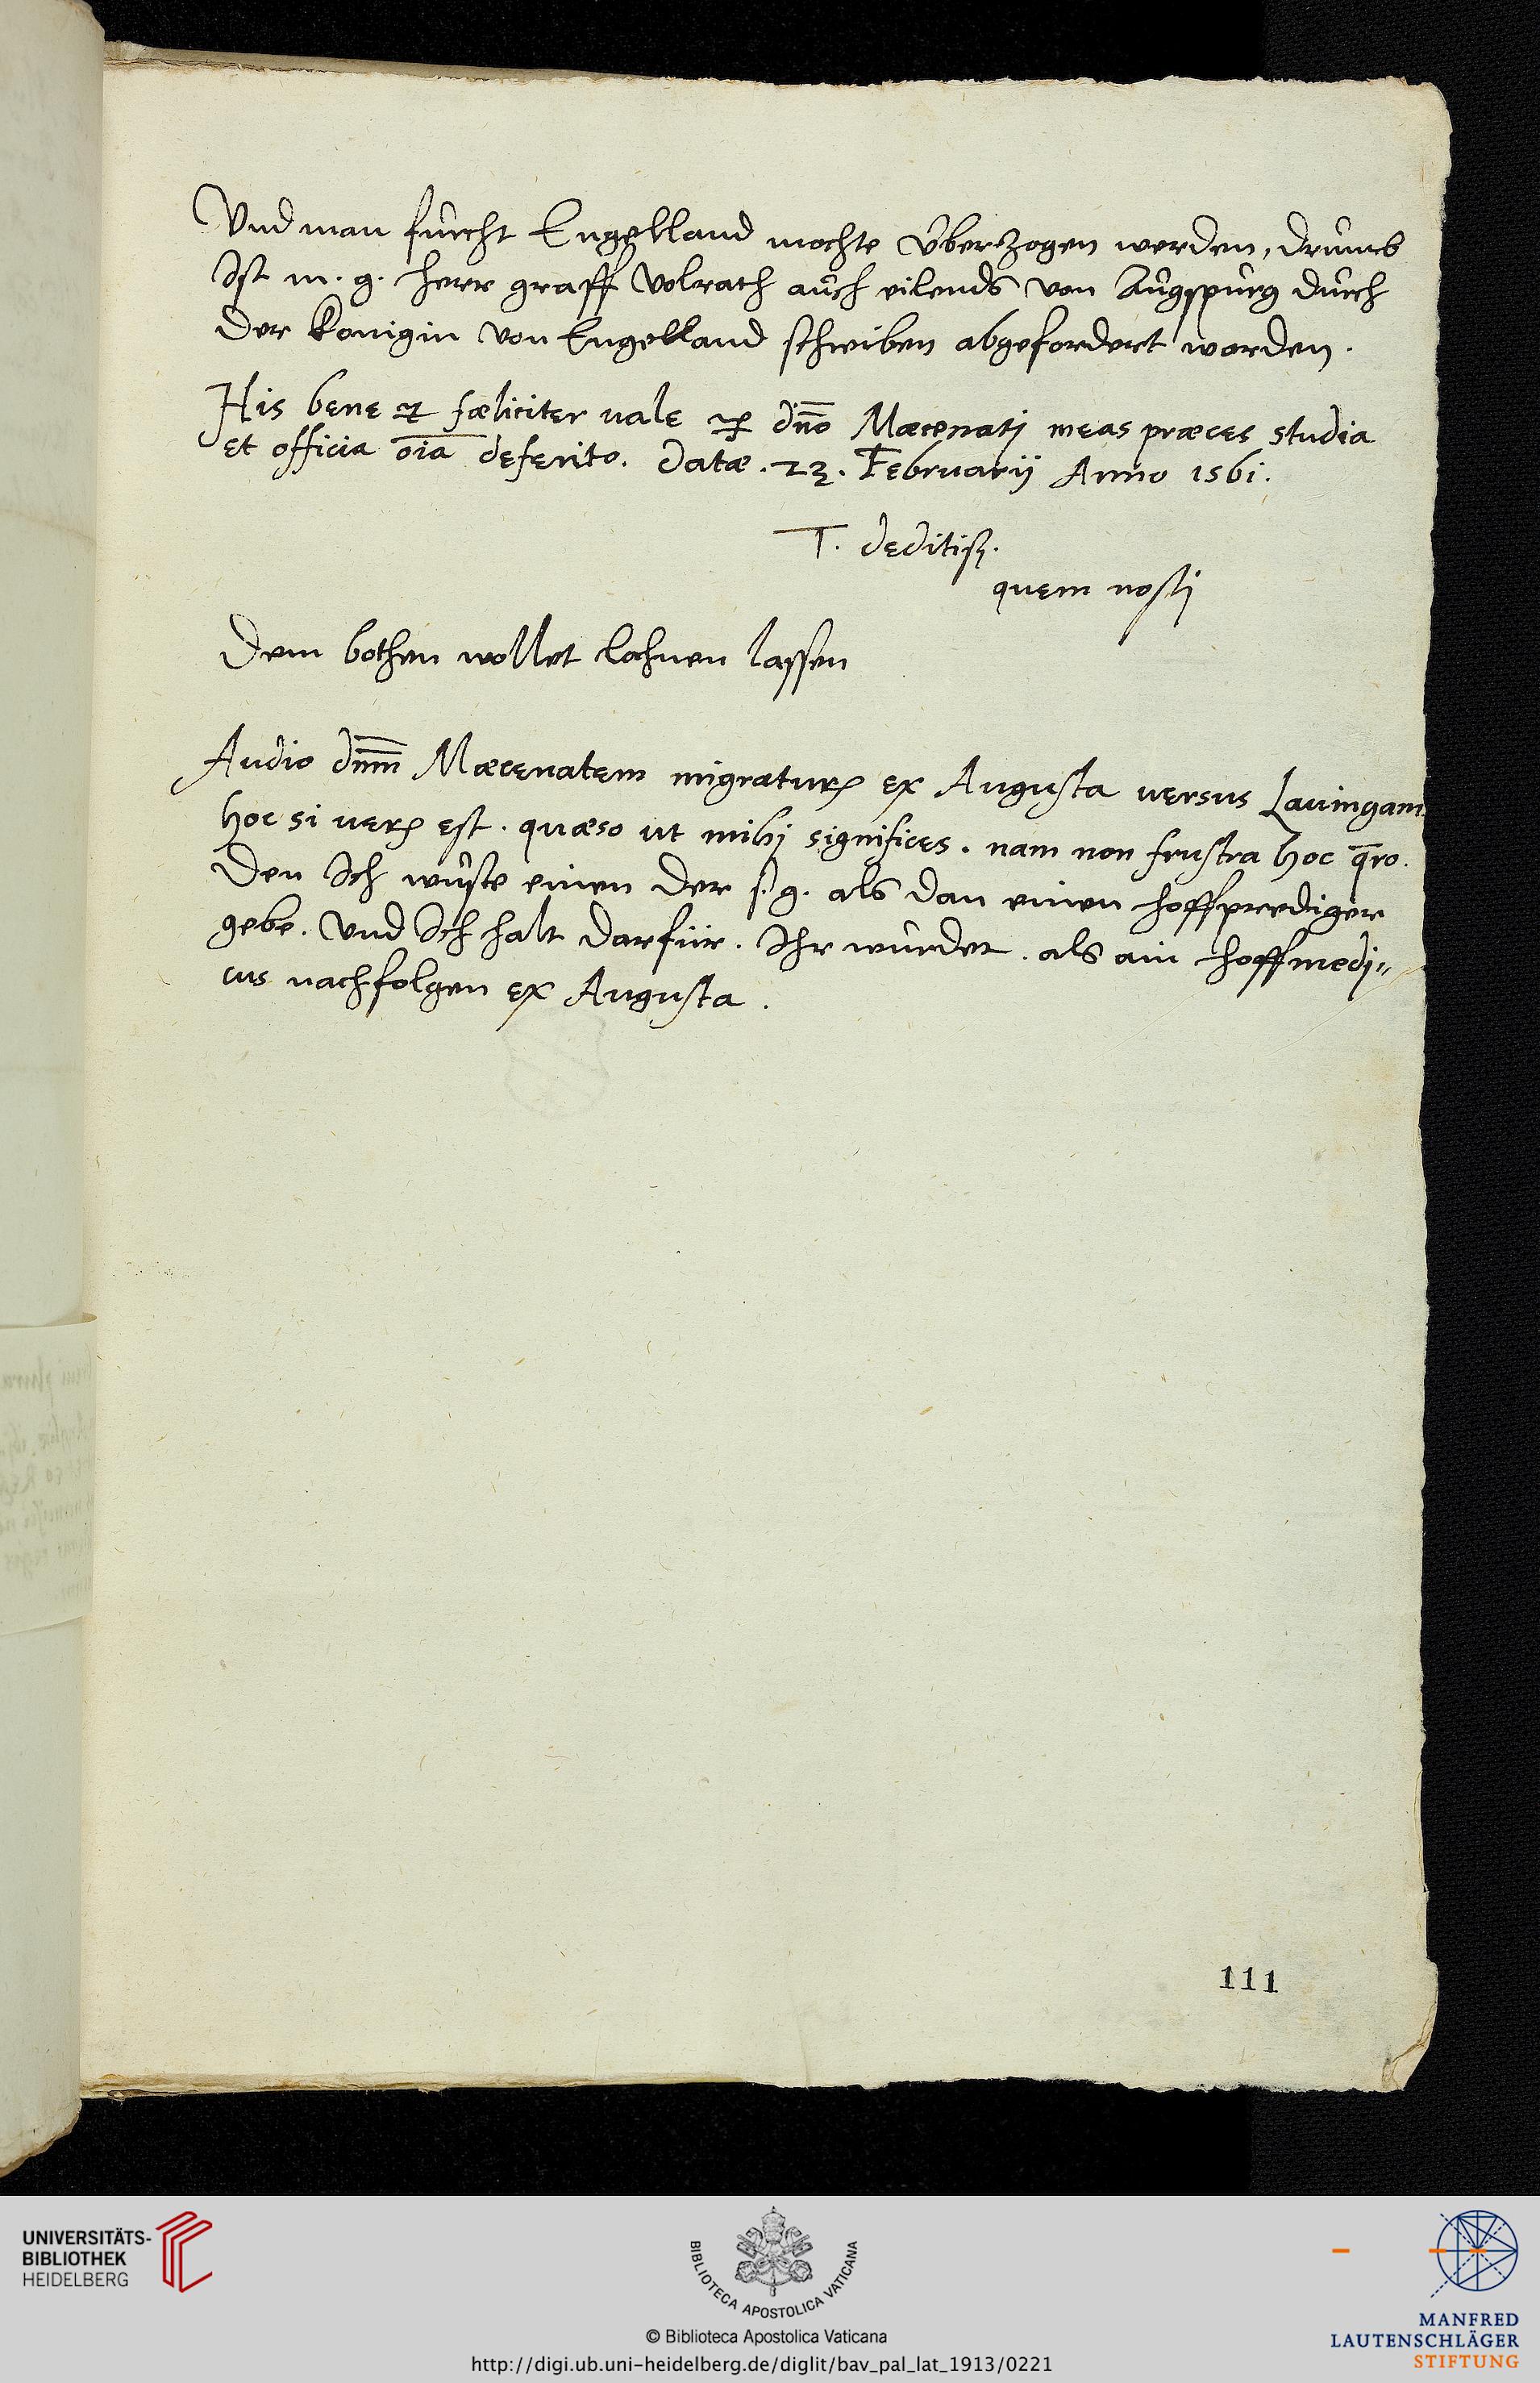 Vnd man furcht Engelland mochte vberzogen werden, drumb
Ist m. g. herr graff Volrath auch eilends von Augspurg durch
der Konigin von Engelland schreiben abgefordert worden.
His bene et fœliciter uale et dn̄o Mæcenatj meas præces studia
et officia oīa deferito. Datæ. 23. Februarij Anno 1561.
T. deditiss.
quem nostj
Dem bothen wollet lohnen lassen
Audio dn̄m Mæcenatem migraturꝫ ex Augusta versus Lauingam.
hoc si uerꝫ est. quæso ut mihj significes. nam non frustra hoc q̄ro.
Den Ich wuste einen der s. g. als dan einen hoffprediger
gebe. Vnd Ich halt darfür. Ihr wurdet. als ain hoffmedi„
cus nachfolgen ex Augusta.
111
UNIVERSITÄTS-
BIBLIOTHEK
HEIDELBERG
BIBLIOTECA APOSTOLICA VATICANA
© Biblioteca Apostolica Vaticana
http://digi.ub.uni-heidelberg.de/diglit/bav_pal_lat_1913/0221
MANFRED
LAUTENSCHLÄGER
STIFTUNG